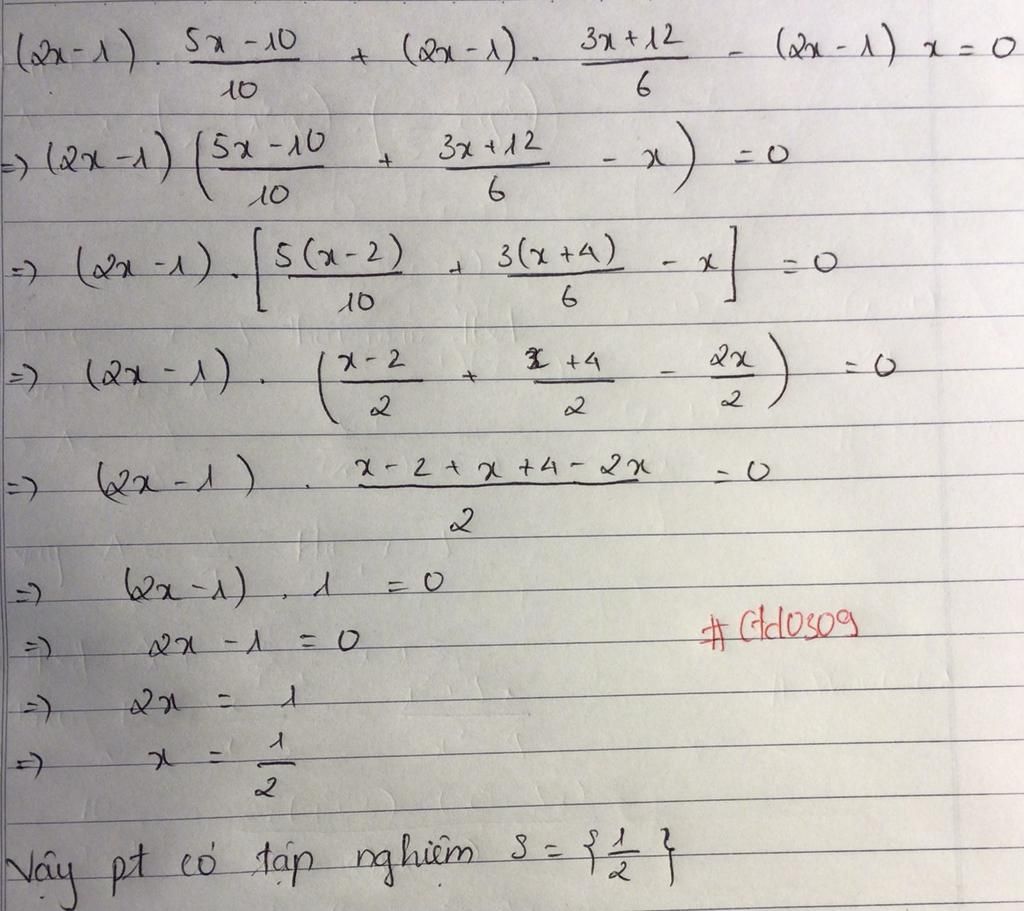 (2x-1) . \frac{5x-10}{10} + (2x-1) . \frac{3x+12}{6} - (2x-1) x = 0
=> (2x-1) (\frac{5x-10}{10} + \frac{3x+12}{6} - x) = 0
=> (2x-1) . [\frac{5(x-2)}{10} + \frac{3(x+4)}{6} - x] = 0
=> (2x-1) . (\frac{x-2}{2} + \frac{x+4}{2} - \frac{2x}{2}) = 0
=> (2x-1) . \frac{x-2+x+4-2x}{2} = 0
=> (2x-1) . 1 = 0
=> 2x-1 = 0
=> 2x = 1
=> x = \frac{1}{2}
Vậy pt có tập nghiệm S = {\frac{1}{2}}